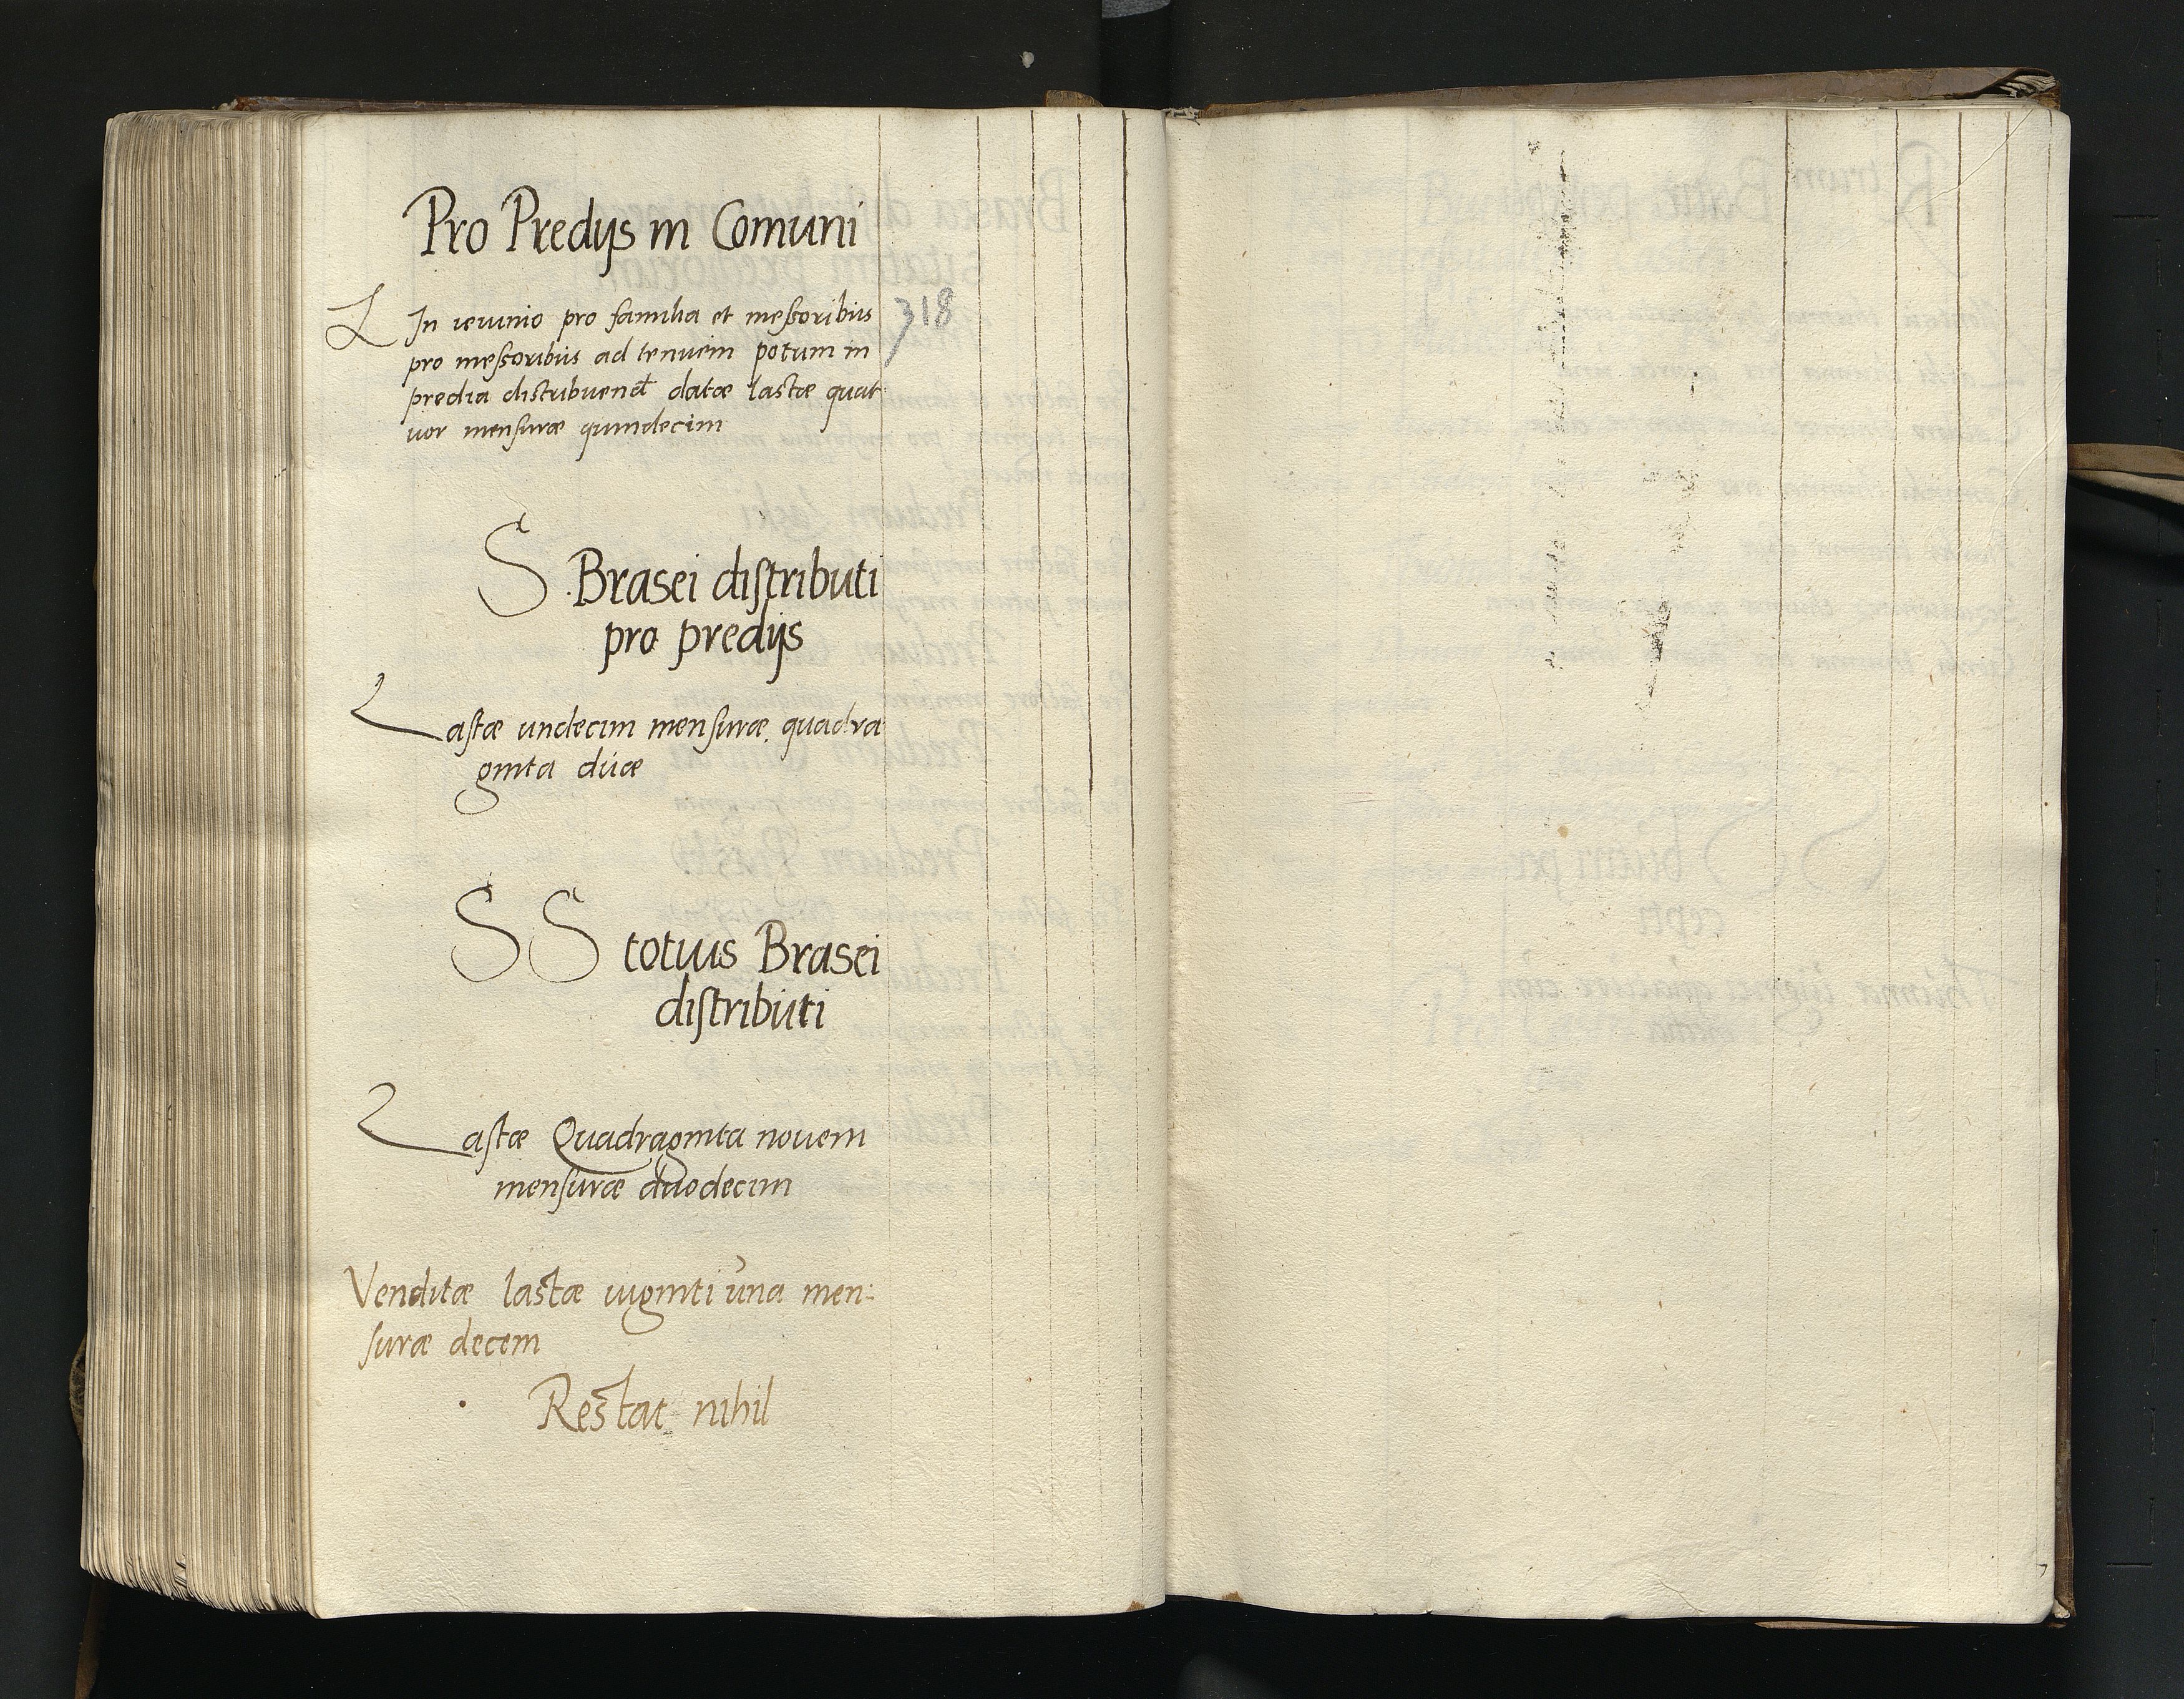 Pro Predijs in Comuni
L In ieiunio pro familia et messoribus 318
pro messoribus ad tenuem potum in
predia distribuend datæ lastæ quat
uor mensuræ quindecim
S Brasei distributi
pro predijs
Lastæ undecim mensuræ quadra
ginta duæ
SS totius Brasei
distributi
Lastæ Quadraginta novem
mensuræ duodecim
Venditæ lastæ viginti una men:
suræ decem
Restat nihil